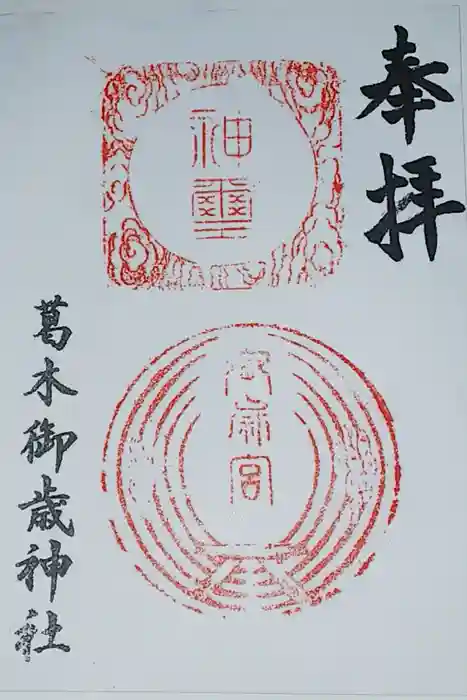 奉拝
神璽
葛木御歳神社